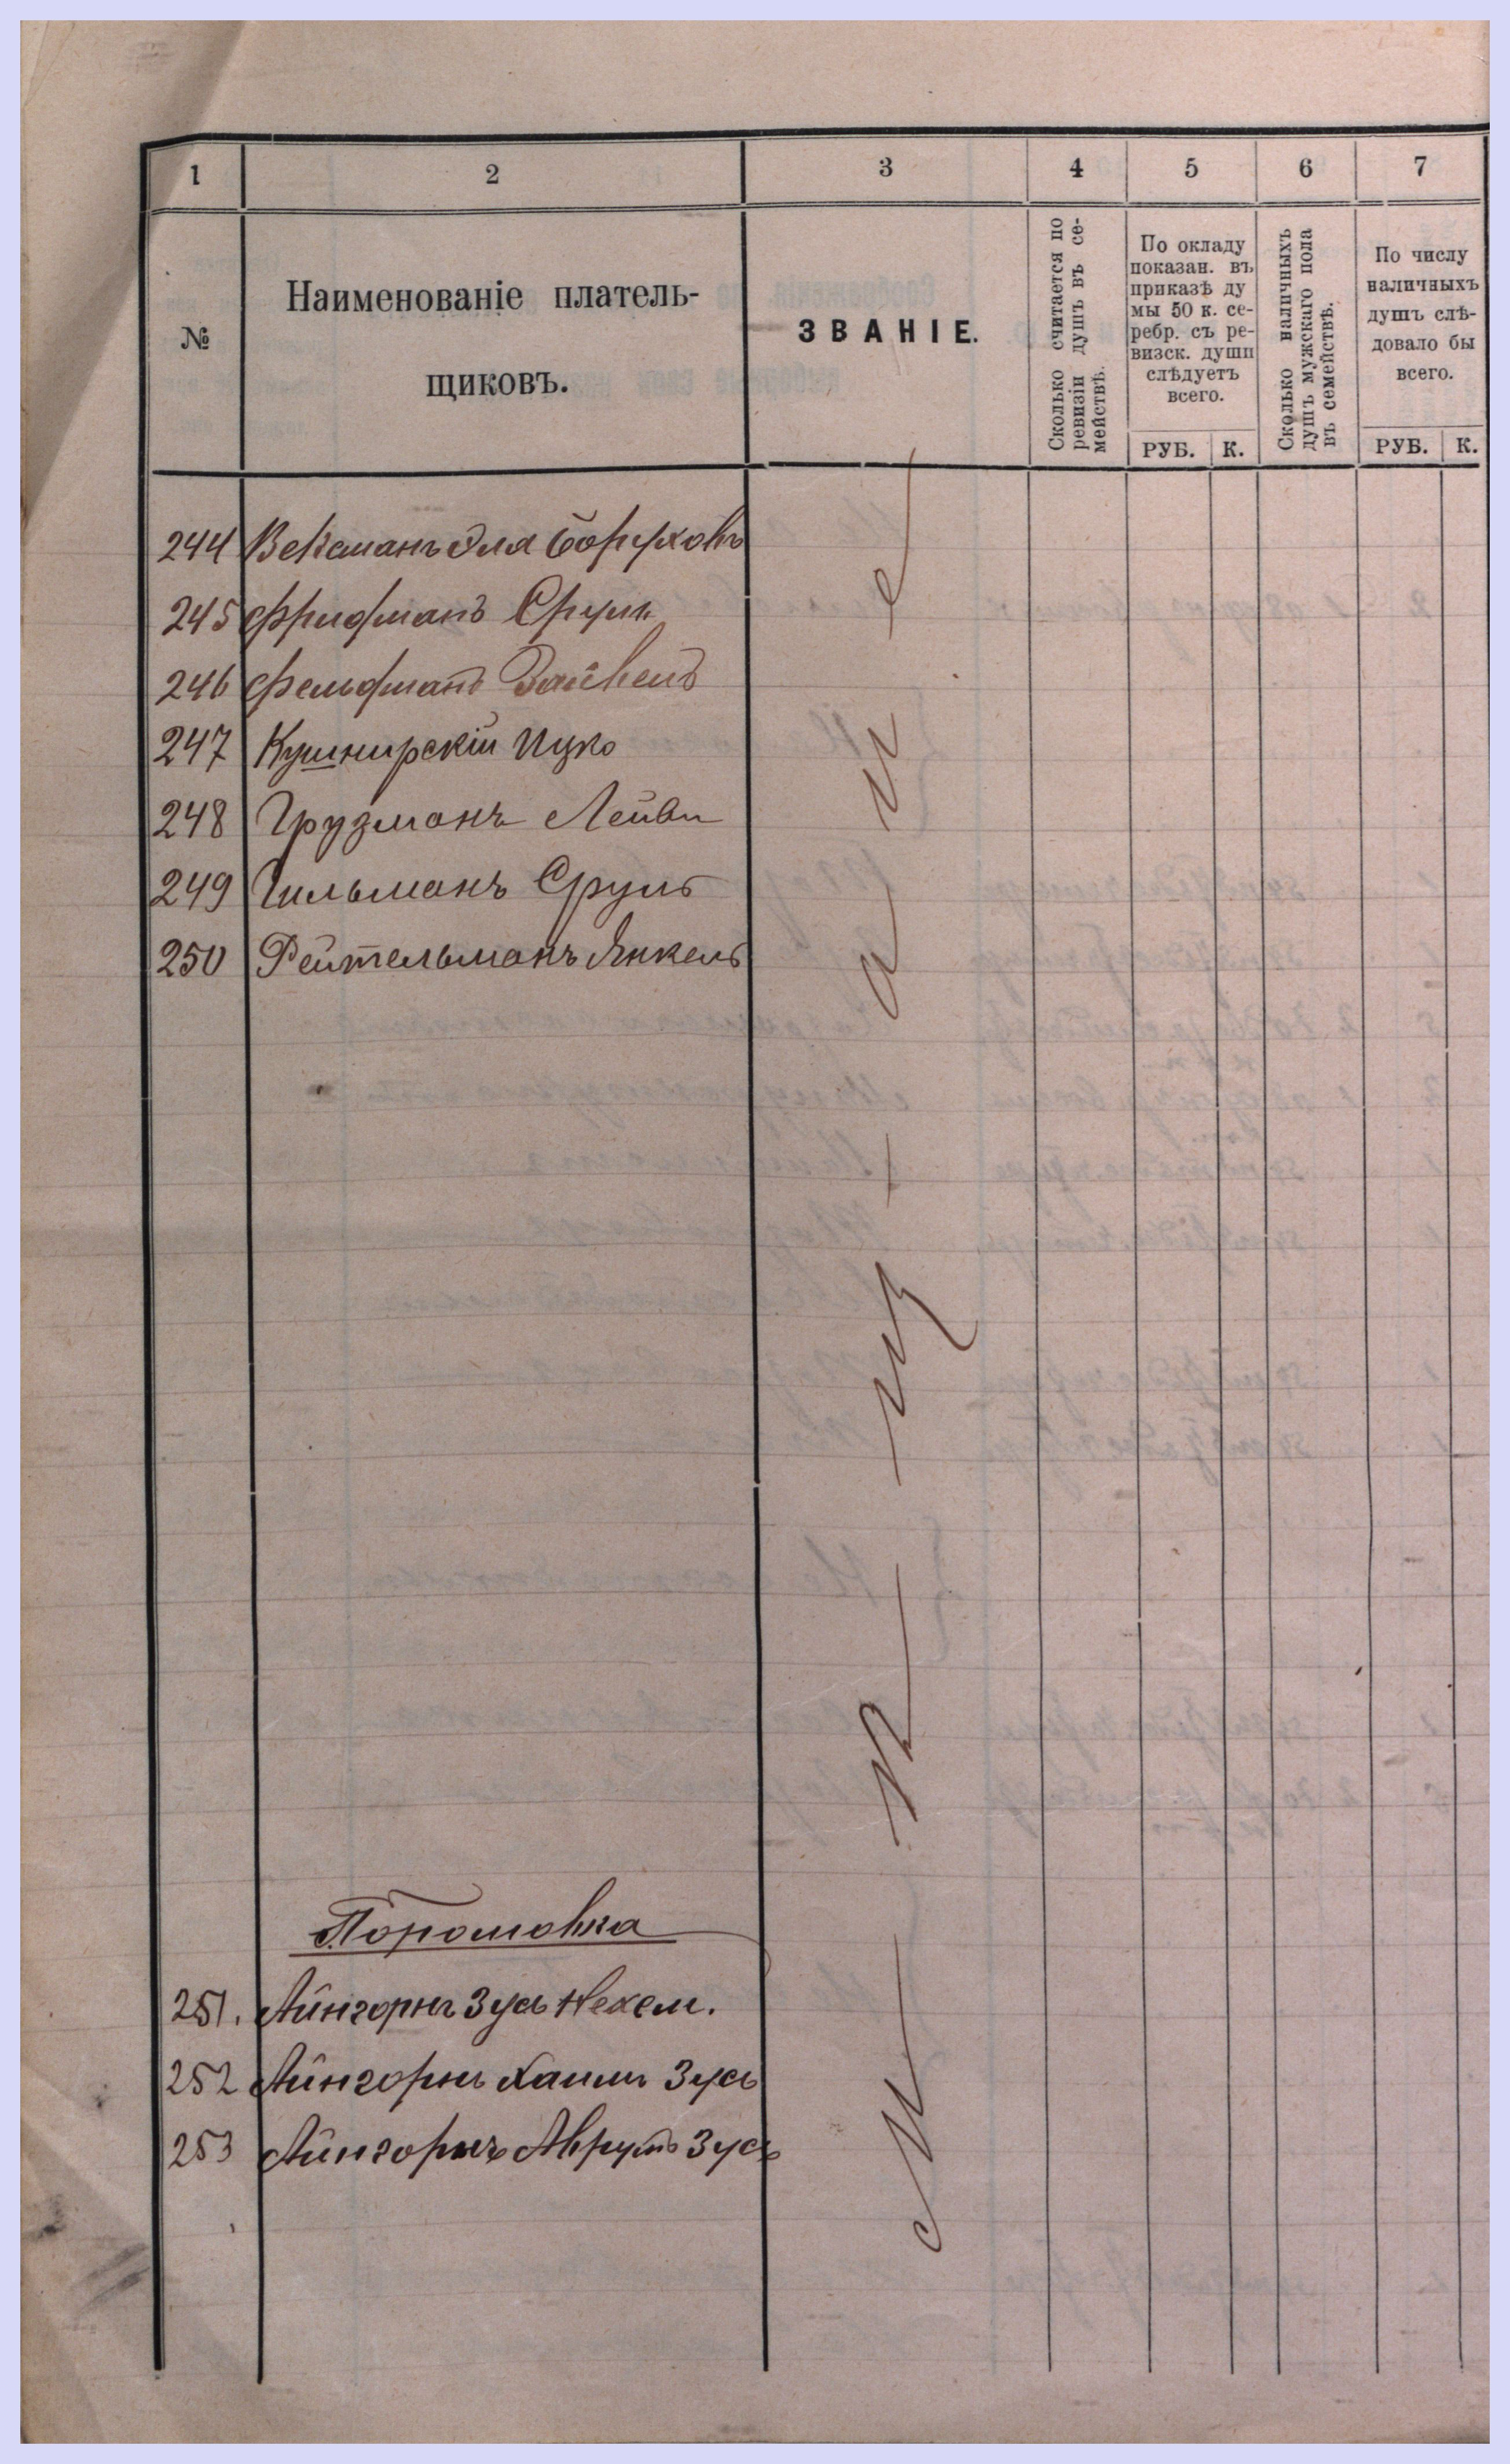 1 2 3 4 5 6 7
№
Наименованіе платель-
щиковъ.
ЗВАНІЕ.
Сколько считается по
ревизіи душъ въ се-
мействѣ.
По окладу
показан. въ
приказѣ ду
мы 50 к. се-
ребр. съ ре-
визск. души
слѣдуетъ
всего.
РУБ. К.
Сколько наличныхъ
душъ мужскаго пола
въ семействѣ.
По числу
наличныхъ
душъ слѣ-
довало бы
всего.
РУБ. К.
244 Вексманъ Эля Боруховъ
245 Фридманъ Сруль
246 Фельдманъ Зайвель
247 Кушнирскій Ицко
248 Грузманъ Лейви
249 Гильманъ Сруль
250 Рейтельманъ Янкель
Мѣщане
251. Айнгорнъ Зусь Нехем.
252 Айнгорнъ Хаимъ Зусь
253 Айнгорнъ Аврумъ Зусь